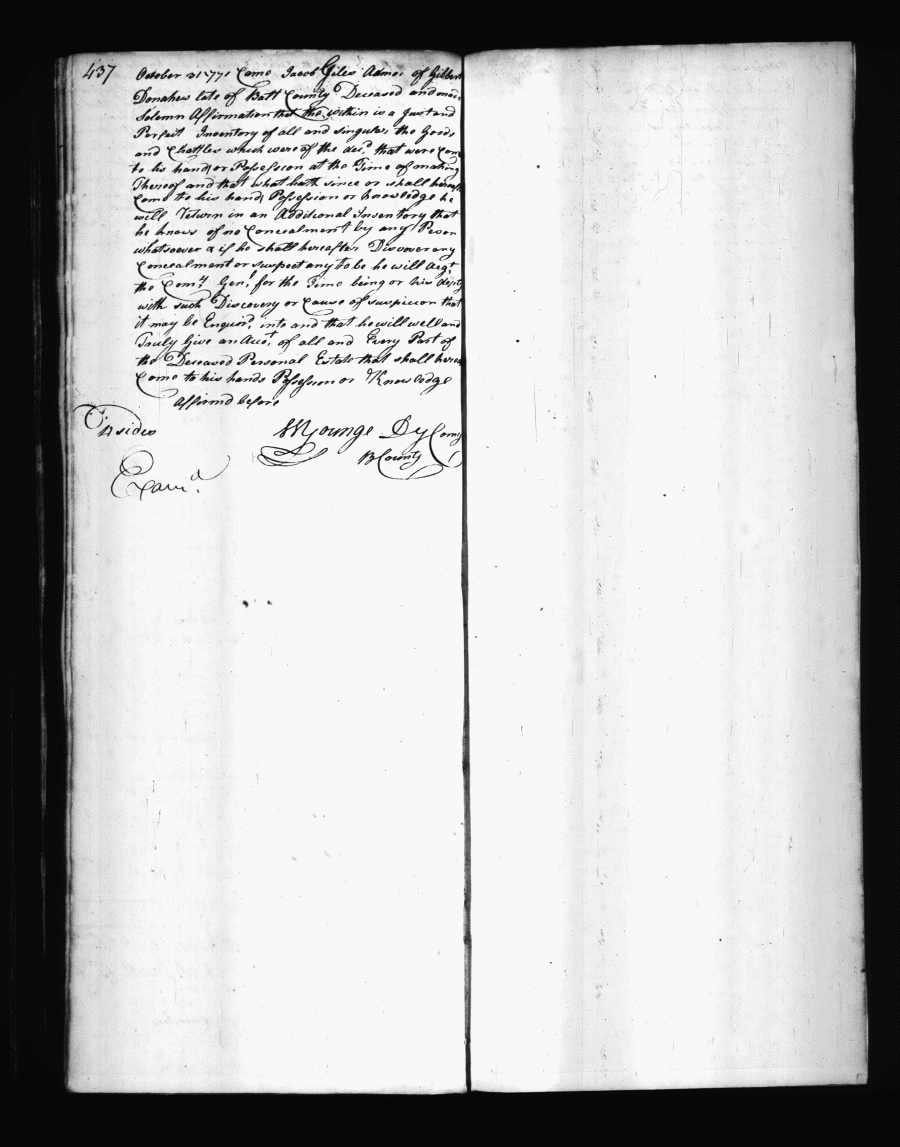 437
October 31 1771 Came Jacob Giles Admor of Gilbert
Donahew late of Balt County Deceased and made
Solemn Affirmation that the within is a Just and
Perfect Inventory of all and singular the Goods
and Chattles which were of the decd that were Come
to his hands or Possession at the Time of making
Thereof and that what hath since or shall hereafter
Come to his hands Possession or knowledge he
will Return in an Additional Inventory that
he knows of no Concealment by any Person
whatsoever & if he shall hereafter Discover any
Concealment or suspect any to be he will Acqt
the Comry Genl for the Time being or his depty
with such Discovery or Cause of suspicion that
it may be Enqurd into and that he will well and
Truly Give an Acct of all and Every Part of
the Deceased Personal Estate that shall herea
Come to his hands Possession or Knowledge
Affirmd before
sides
WYounge Dy Comy
B County
Examd